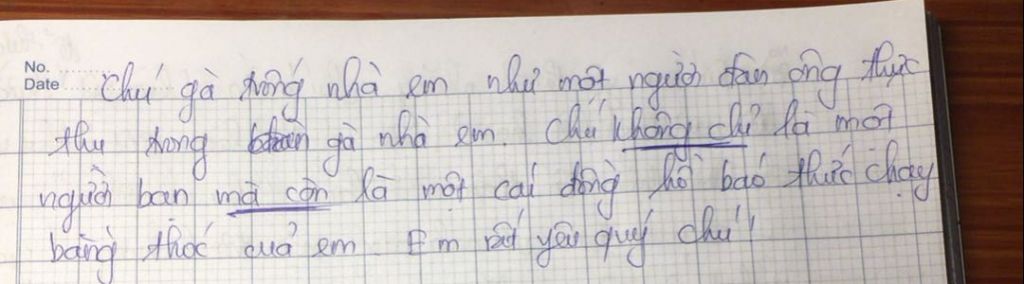 No.
Date
Chú gà trống nhà em như một người đàn ông thực
thụ trong đàn gà nhà em. Chú không chỉ là một
người bạn mà còn là một cái đồng hồ báo thức chạy
bằng thóc của em. Em rất yêu quý chú!